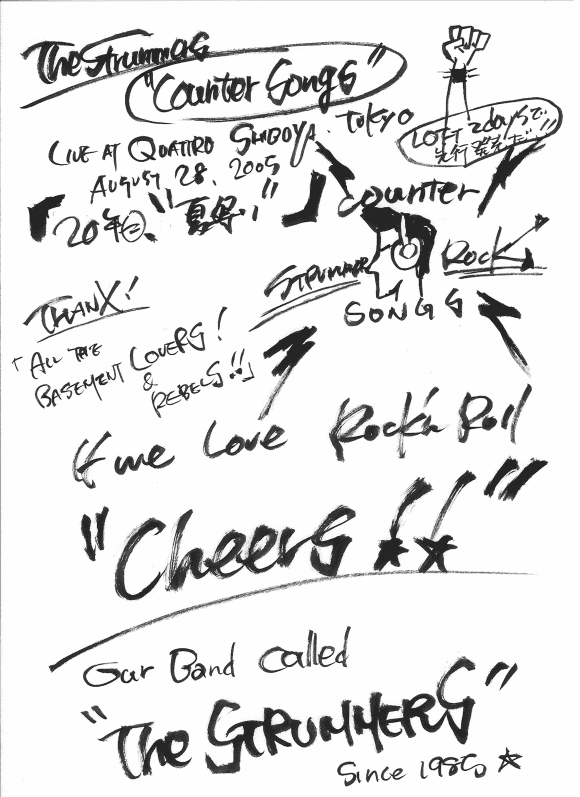 The Strummers
"Counter Songs"
LOFT 2daysで
先行発売だ!!
LIVE AT QUATTRO SHIBUYA. TOKYO
AUGUST 28, 2005
「20年目、"夏専!"」
counter
STRUMMER
ROCK
SONGS
THANX!
「ALL THE
BASEMENT LOVERS!
&
REBELS!!」
If we Love Rock'n Roll
"Cheers!!"
Our Band called
"The STRUMMERS"
Since 1985